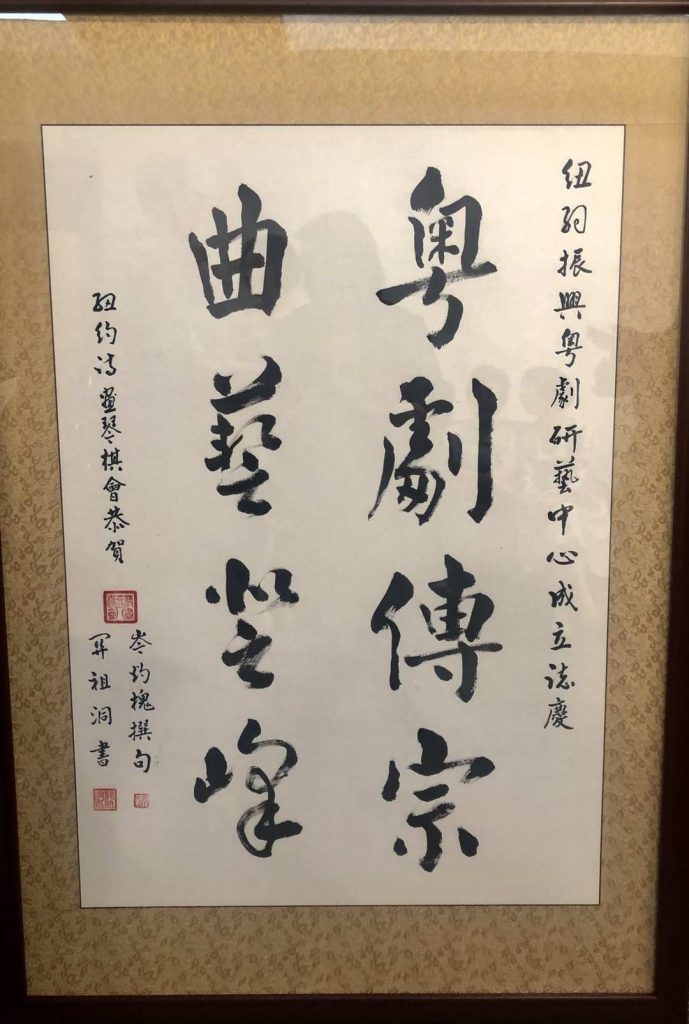 紐約振興粤劇研藝中心成立誌慶
粤劇傳宗
曲藝登峰
紐約诗畫琴棋會恭賀
岑灼槐撰句
關祖洞書